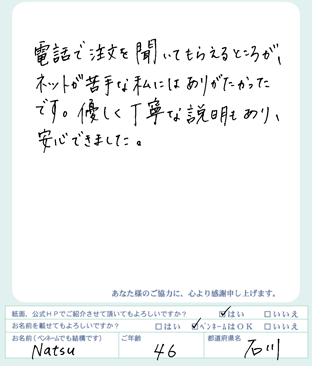 電話で注文を聞いてもらえるところが、
ネットが苦手な私にはありがたかった
です。優しく丁寧な説明もあり、
安心できました。
あなた様のご協力に、心より感謝申し上げます。
紙面、公式HPでご紹介させて頂いてもよろしいですか? ☑はい □いいえ
お名前を載せてもよろしいですか? □はい ☑ペンネームはOK □いいえ
お名前(ペンネームでも結構です) ご年齢 都道府県名
Natsu 46 石川